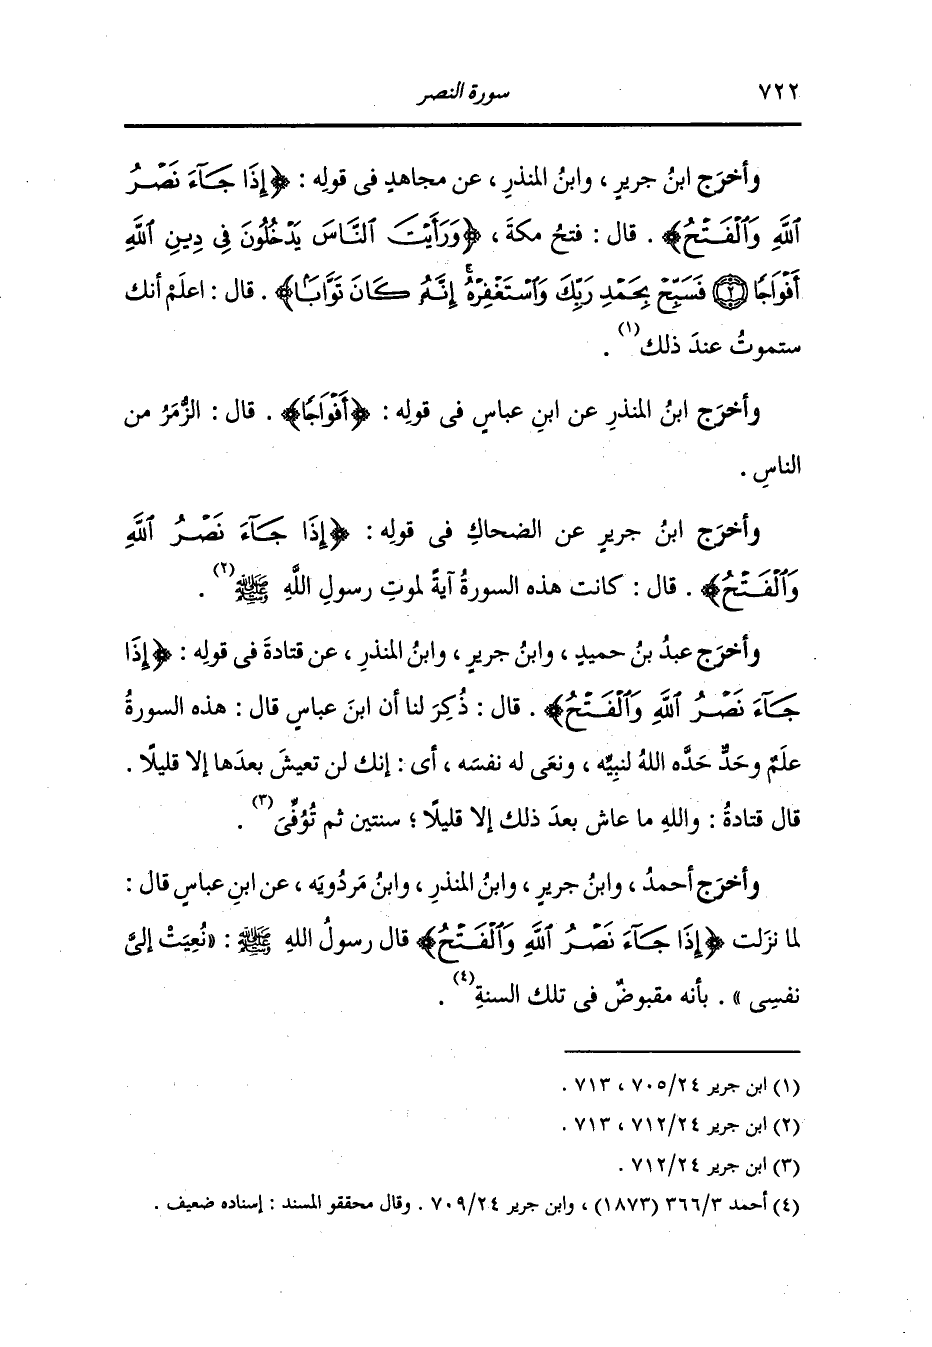 ٧٢٢
سورة النصر
وأخرَج ابنُ جريرٍ ، وابنُ المنذرِ ، عن مجاهدٍ فى قولِه : ﴿إِذَا جَآءَ نَصْرُ
ٱللَّهِ وَٱلْفَتْحُ﴾ . قال : فتحُ مكةَ ، ﴿وَرَأَيْتَ ٱلنَّاسَ يَدْخُلُونَ فِى دِينِ ٱللَّهِ
أَفْوَاجًا ۝٢ فَسَبِّحْ بِحَمْدِ رَبِّكَ وَٱسْتَغْفِرْهُ ۚ إِنَّهُ كَانَ تَوَّابًا﴾ . قال : اعلَمْ أنك
ستموتُ عندَ ذلك(١) .
وأخرَج ابنُ المنذرِ عن ابنِ عباسٍ فى قولِه : ﴿أَفْوَاجًا﴾ . قال : الزُّمَرُ من
الناسِ .
وأخرَج ابنُ جريرٍ عن الضحاكِ فى قولِه : ﴿إِذَا جَآءَ نَصْرُ ٱللَّهِ
وَٱلْفَتْحُ﴾ . قال : كانت هذه السورةُ آيةً لموتِ رسولِ اللَّهِ ﷺ(٢) .
وأخرَج عبدُ بنُ حميدٍ ، وابنُ جريرٍ ، وابنُ المنذرِ ، عن قتادةَ فى قولِه : ﴿إِذَا
جَآءَ نَصْرُ ٱللَّهِ وَٱلْفَتْحُ﴾ . قال : ذُكِرَ لنا أن ابنَ عباسٍ قال : هذه السورةُ
علَمٌ وحَدٌّ حَدَّه اللهُ لنبيِّه ، ونعَى له نفسَه ، أى : إنك لن تعيشَ بعدَها إلا قليلًا .
قال قتادةُ : واللهِ ما عاش بعدَ ذلك إلا قليلًا ؛ سنتين ثم تُوُفِّىَ(٣) .
وأخرَج أحمدُ ، وابنُ جريرٍ ، وابنُ المنذرِ ، وابنُ مَردُويَه ، عن ابنِ عباسٍ قال :
لما نزَلت ﴿إِذَا جَآءَ نَصْرُ ٱللَّهِ وَٱلْفَتْحُ﴾ قال رسولُ اللهِ ﷺ : «نُعِيَتْ إلىَّ
نفسِى » . بأنه مقبوضٌ فى تلك السنةِ(٤) .
(١) ابن جرير ٧٠٥/٢٤ ، ٧١٣ .
(٢) ابن جرير ٧١٢/٢٤ ، ٧١٣ .
(٣) ابن جرير ٧١٢/٢٤ .
(٤) أحمد ٣٦٦/٣ (١٨٧٣) ، وابن جرير ٧٠٩/٢٤ . وقال محققو المسند : إسناده ضعيف .